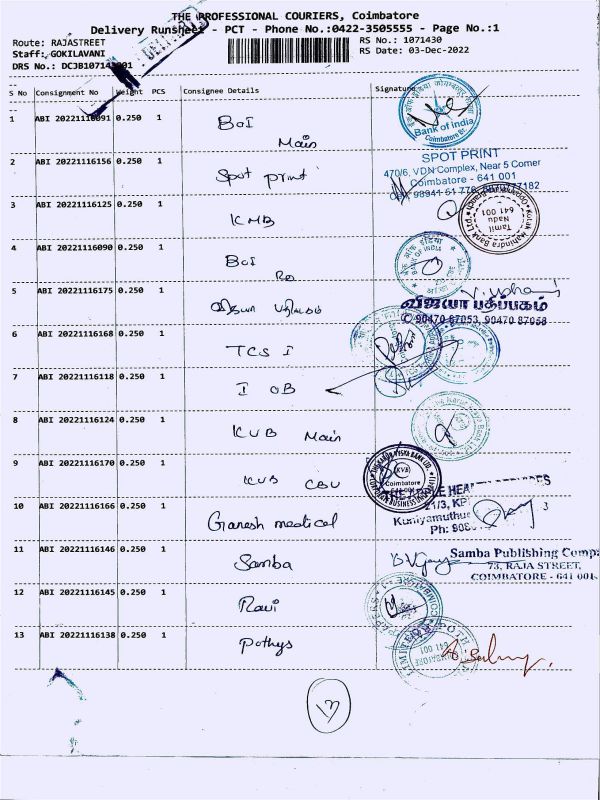 THE PROFESSIONAL COURIERS, Coimbatore
Delivery Runsheet - PCT - Phone No.:0422-3505555 - Page No.:1
Route: RAJASTREET
RS No.: 1071430
Staff: GOKILAVANI
RS Date: 03-Dec-2022
DRS No.: DCJB1071430001
S No Consignment No Weight PCS Consignee Details Signature
1 ABI 20221116091 0.250 1 BOI Main
Bank of India
Coimbatore Br.
2 ABI 20221116156 0.250 1 Spot print
SPOT PRINT
470/6, VDN Complex, Near 5 Corner
Coimbatore - 641 001
3 ABI 20221116125 0.250 1 KMB
Kotak Mahindra Bank Ltd
Tamil Nadu
641 001
4 ABI 20221116090 0.250 1 BOI RO
BANK OF INDIA
5 ABI 20221116175 0.250 1
விஜயா பதிப்பகம்
✆ 90470 87053, 90470 87058
6 ABI 20221116168 0.250 1 TCS I
7 ABI 20221116118 0.250 1 IOB
8 ABI 20221116124 0.250 1 KVB Main
9 ABI 20221116170 0.250 1 KVB CBU
KVB
Coimbatore
10 ABI 20221116166 0.250 1 Ganesh medical
21/3, KP
Kuniyamuthur
Ph:
11 ABI 20221116146 0.250 1 Samba
Samba Publishing Comp
73, RAJA STREET,
COIMBATORE - 641 001
12 ABI 20221116145 0.250 1 Ravi
13 ABI 20221116138 0.250 1 Pothys
641 001
13